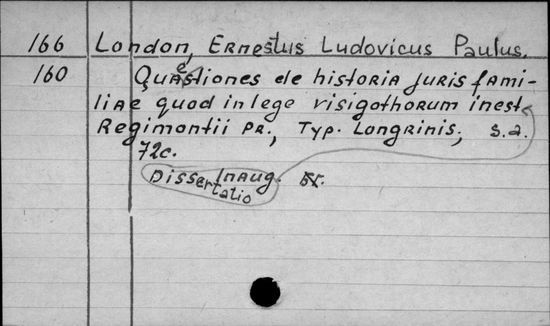 166 London, Ernestus Ludovicus Paulus.
160 Quaestiones de historia juris fami-
liae quod in lege visigothorum inest
Regimontii Pr., Typ. Longrinis, s.a.
72c.
Dissertatio Inaug.